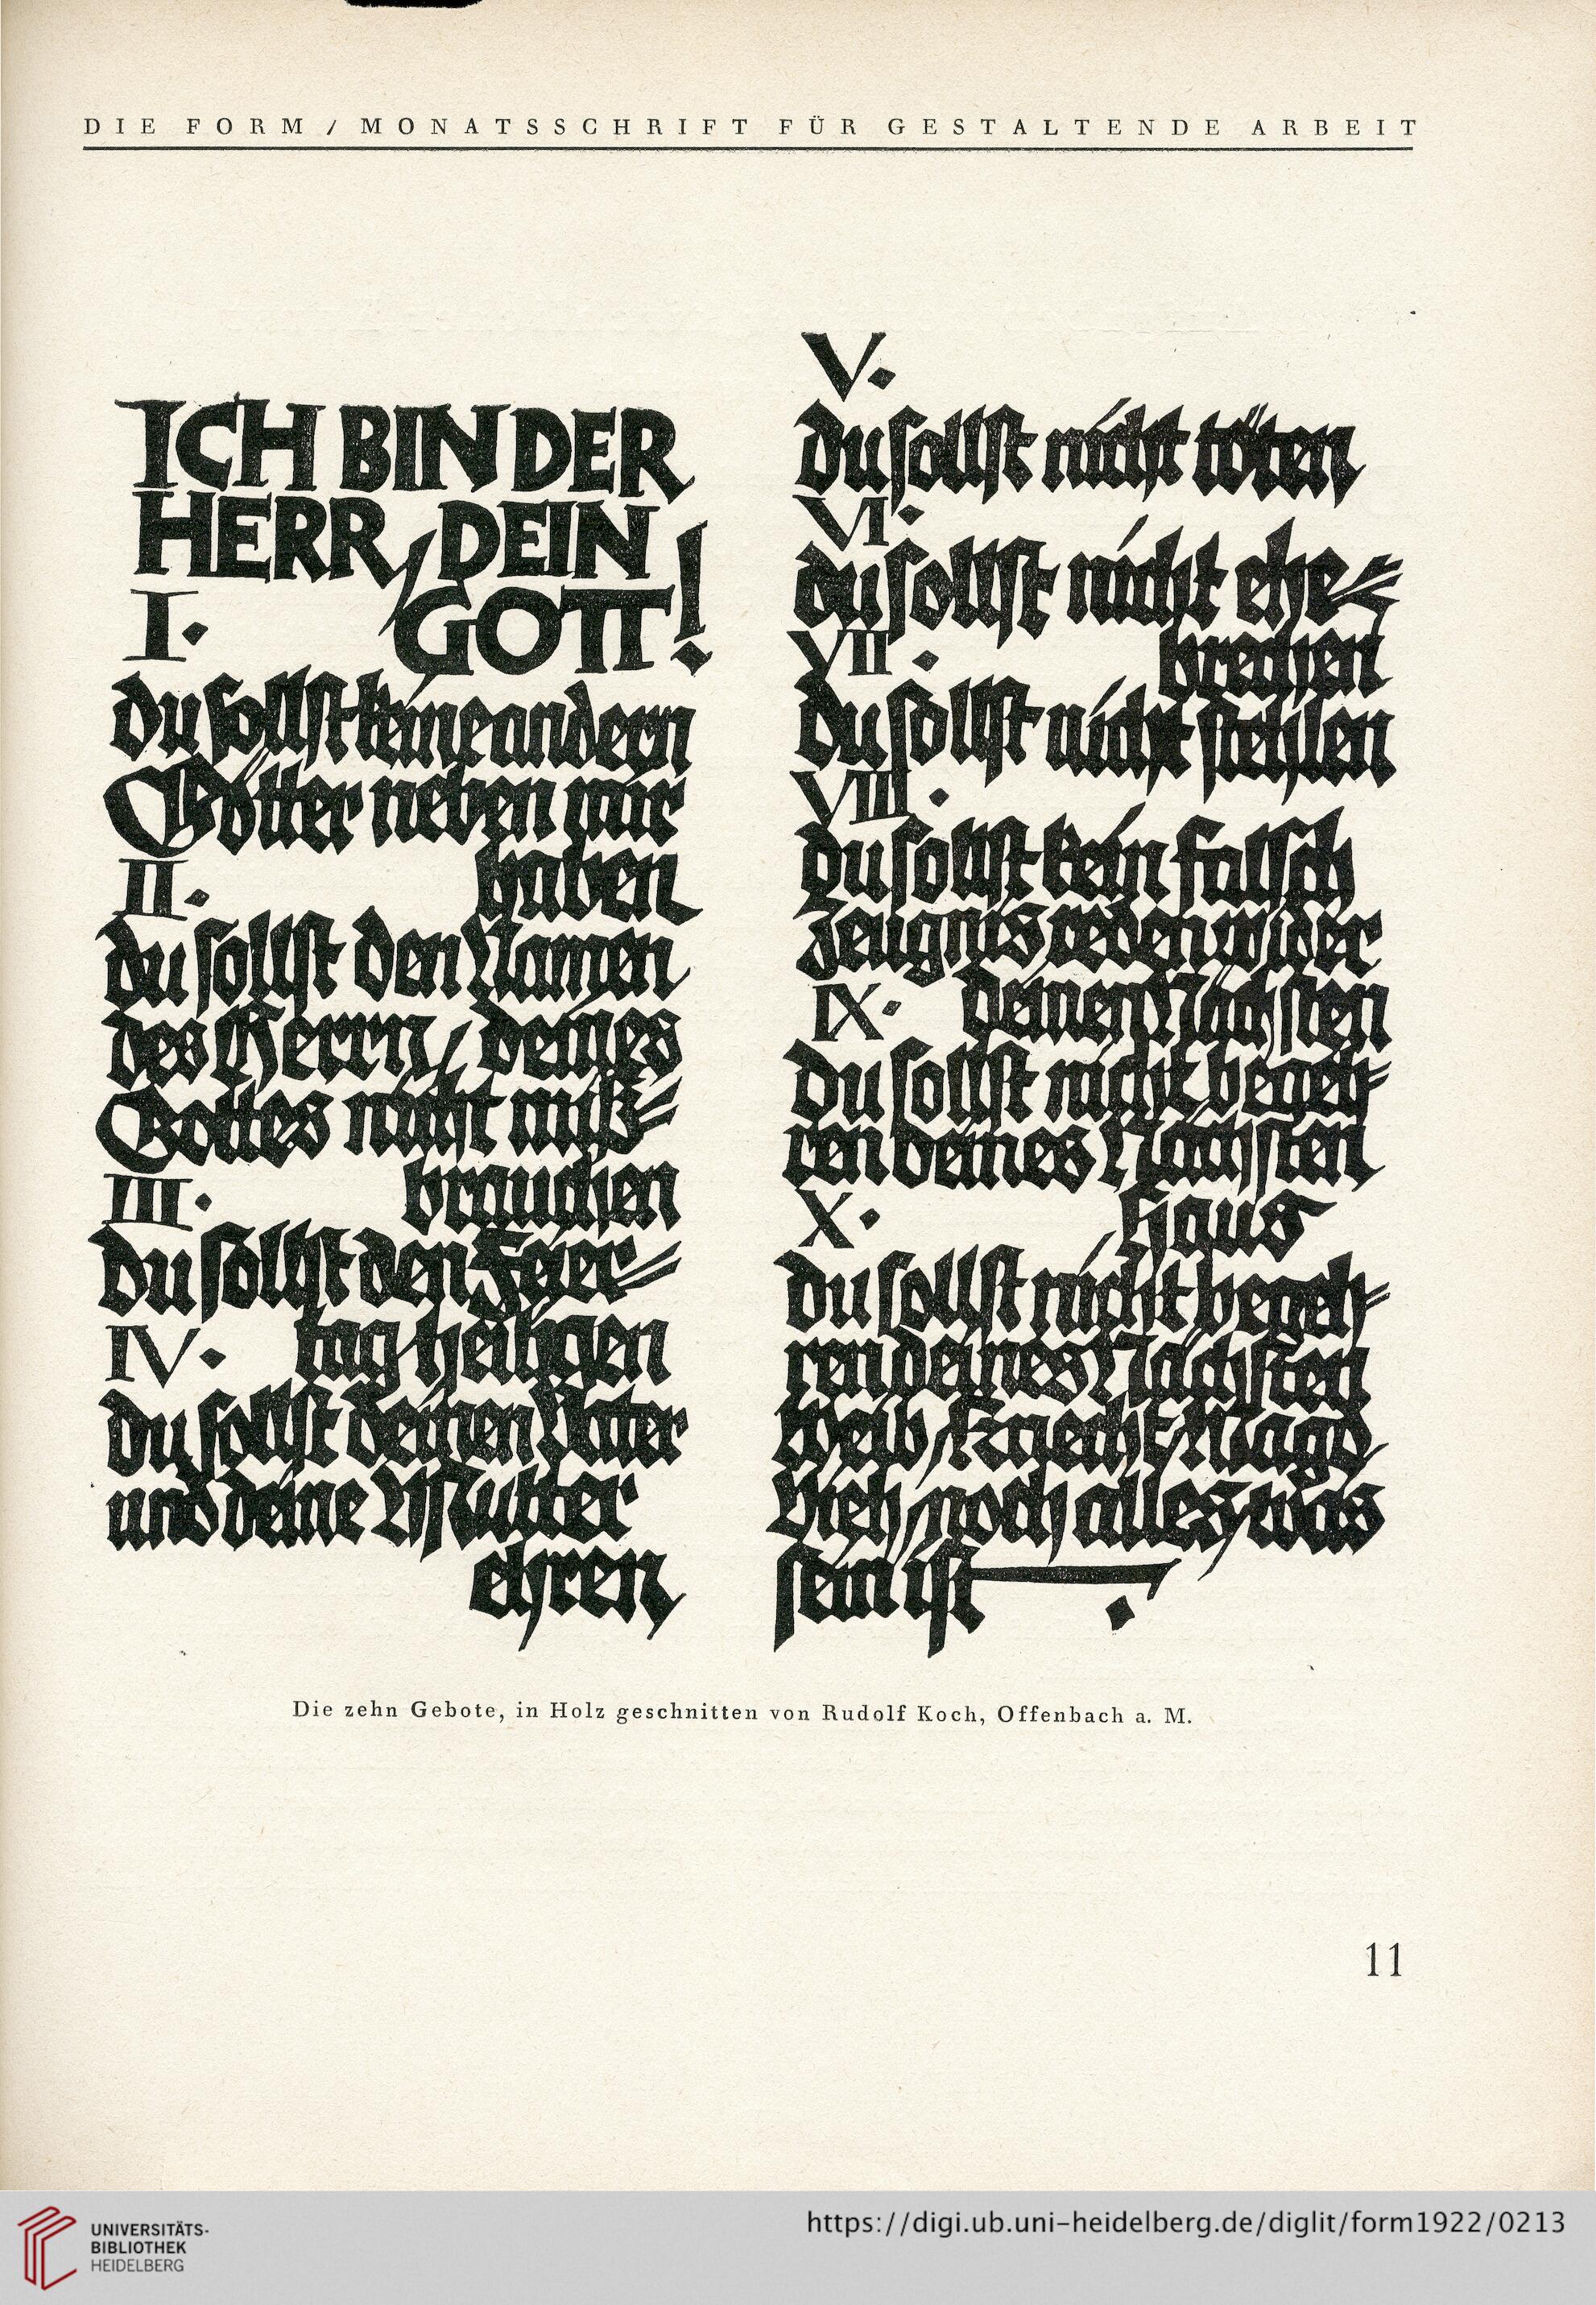 DIE FORM / MONATSSCHRIFT FÜR GESTALTENDE ARBEIT
ICH BIN DER
HERR, DEIN
I. GOTT!
du sollst keine andern
Götter neben mir
II. haben
du sollst den Namen
des Herrn, deines
Gottes nicht miß-
III. brauchen
du sollst den Feier-
IV. tag heiligen
du sollst deinen Vater
und deine Mutter
ehren
V.
du sollst nicht töten
VI.
du sollst nicht ehe-
VII. brechen
du sollst nicht stehlen
VIII.
du sollst kein falsch
Zeugnis reden wider
IX. deinen Nächsten
du sollst nicht begeh-
ren deines Nächsten
X. Haus
du sollst nicht begeh-
ren deines Nächsten
Weib, Knecht, Magd,
Vieh, noch alles, was
sein ist.
Die zehn Gebote, in Holz geschnitten von Rudolf Koch, Offenbach a. M.
11
UNIVERSITÄTS-
BIBLIOTHEK
HEIDELBERG
https://digi.ub.uni-heidelberg.de/diglit/form1922/0213